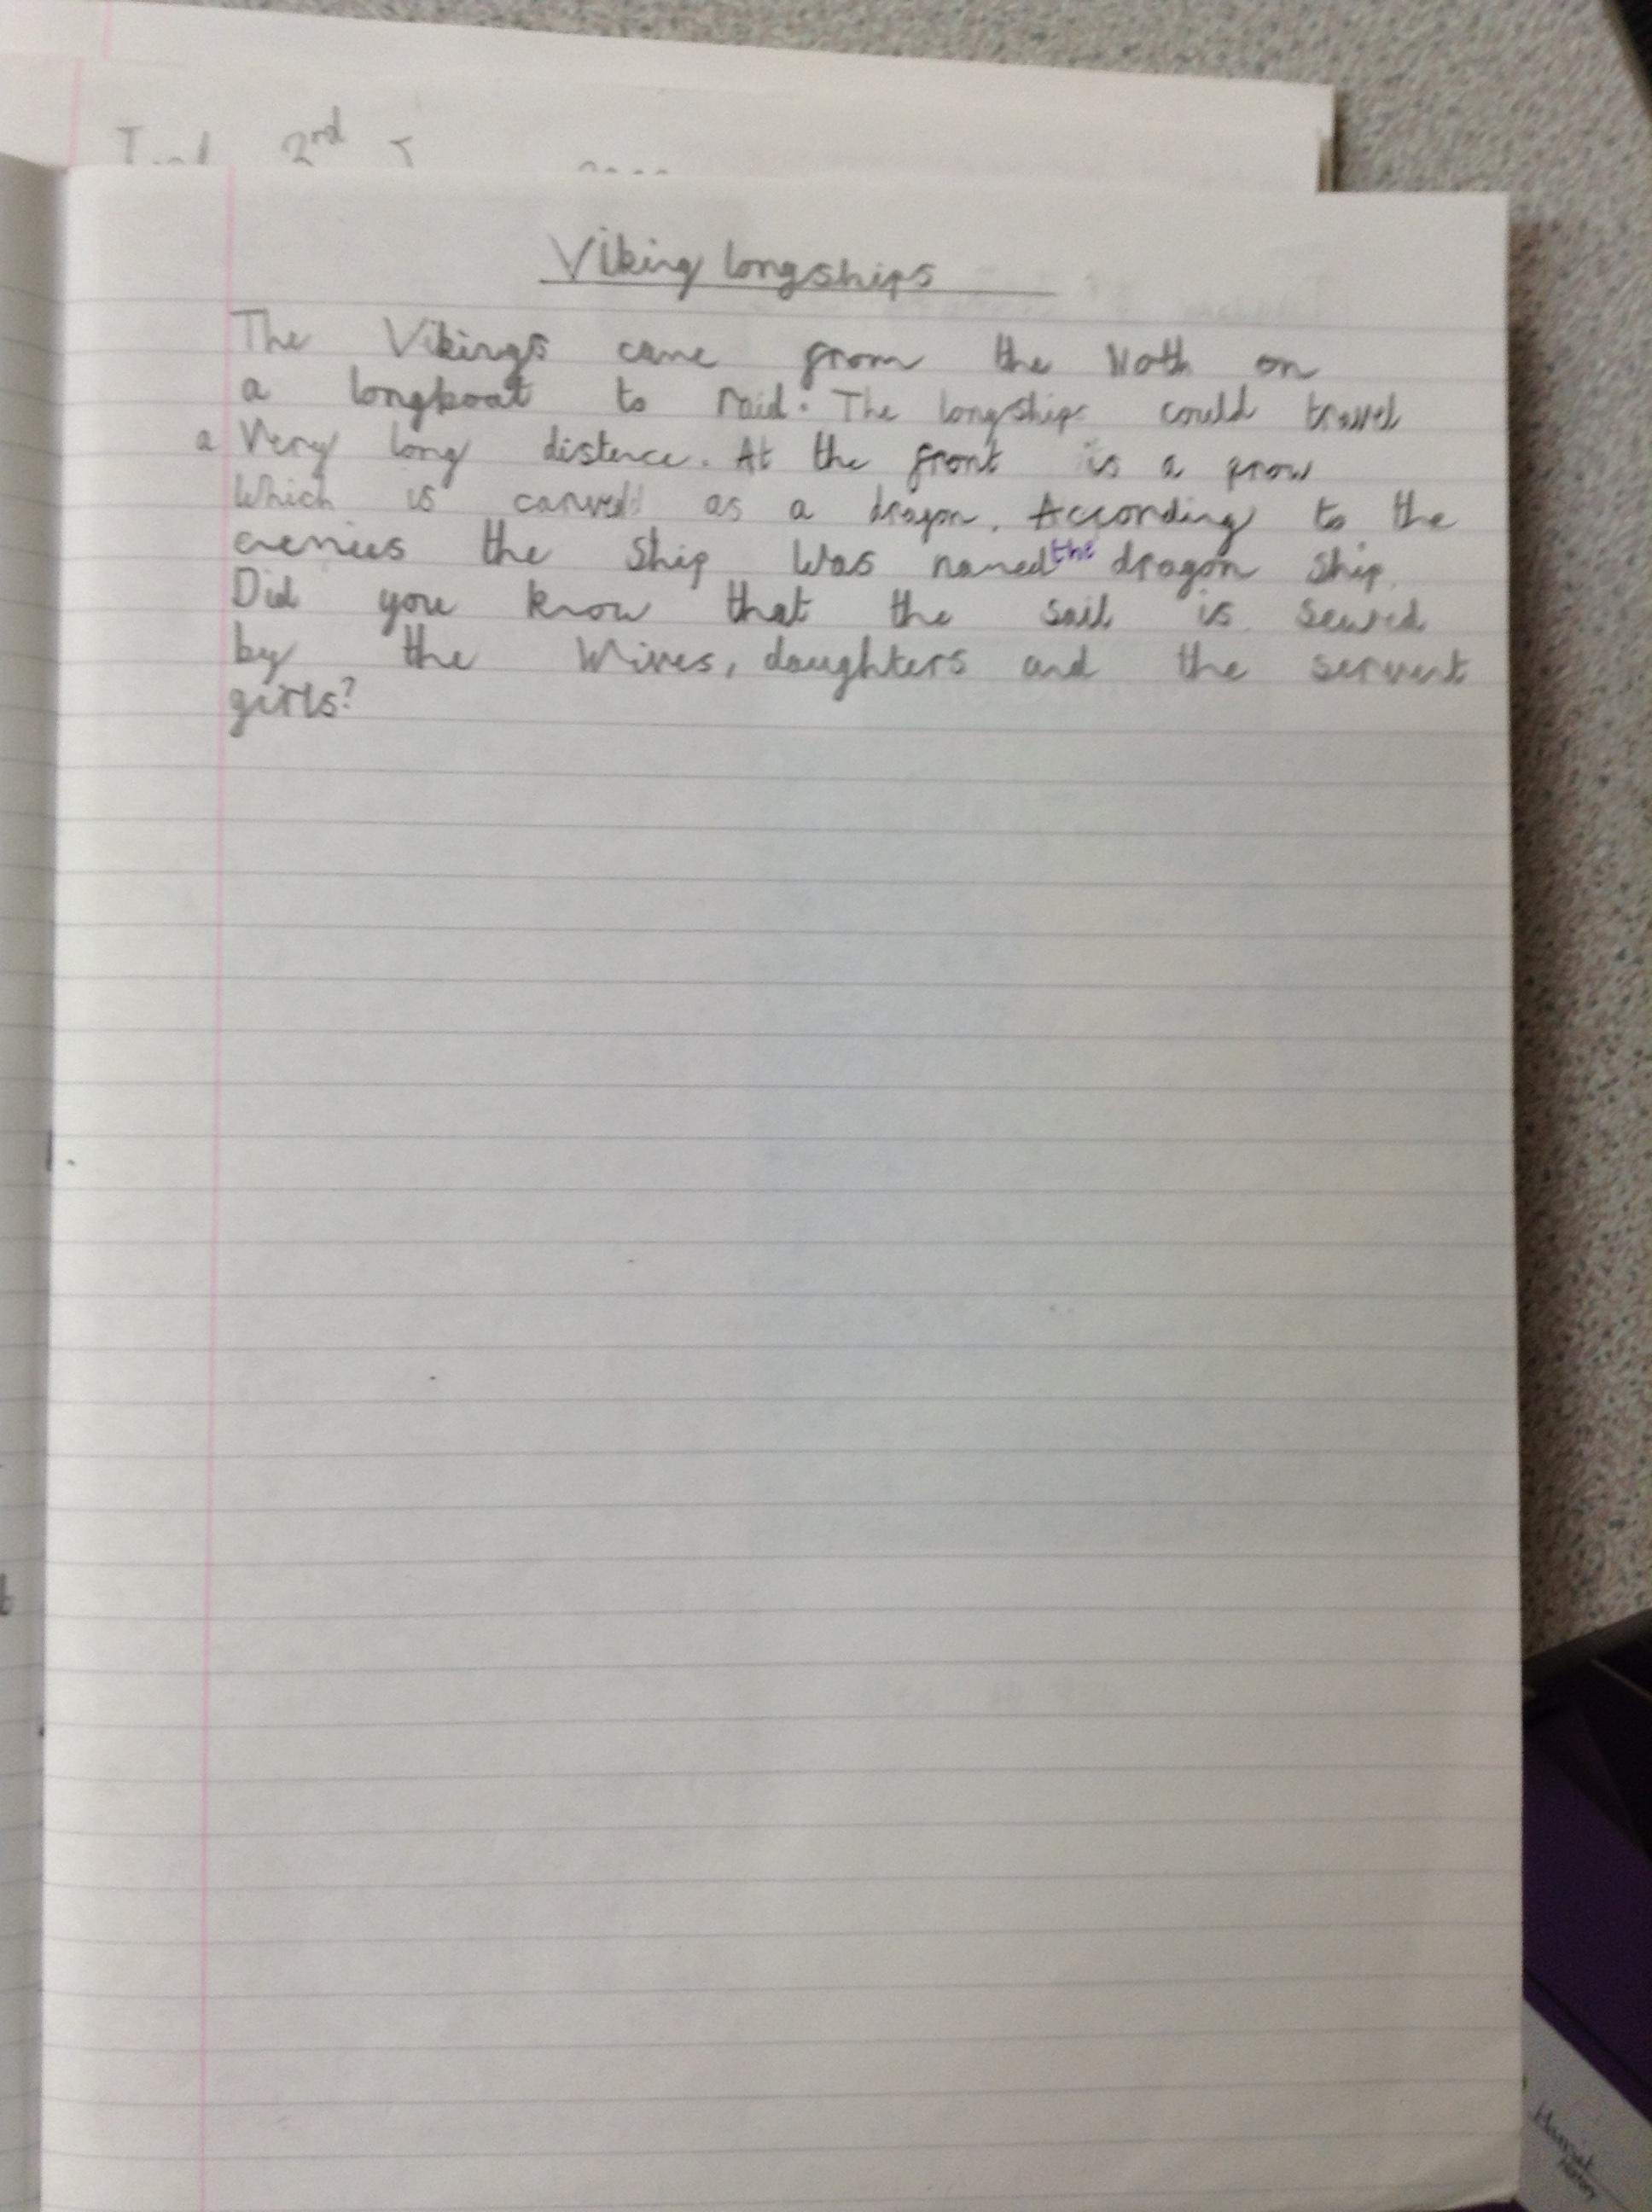 2nd
Viking longships
The Vikings came from the Noth on
a longboat to raid. The longships could travel
a Very long distence. At the front is a prow
Which is carved as a dragon. According to the
enemies the Ship Was named the dragon ship.
Did you know that the sail is sewed
by the Wives, daughters and the servent
girls?